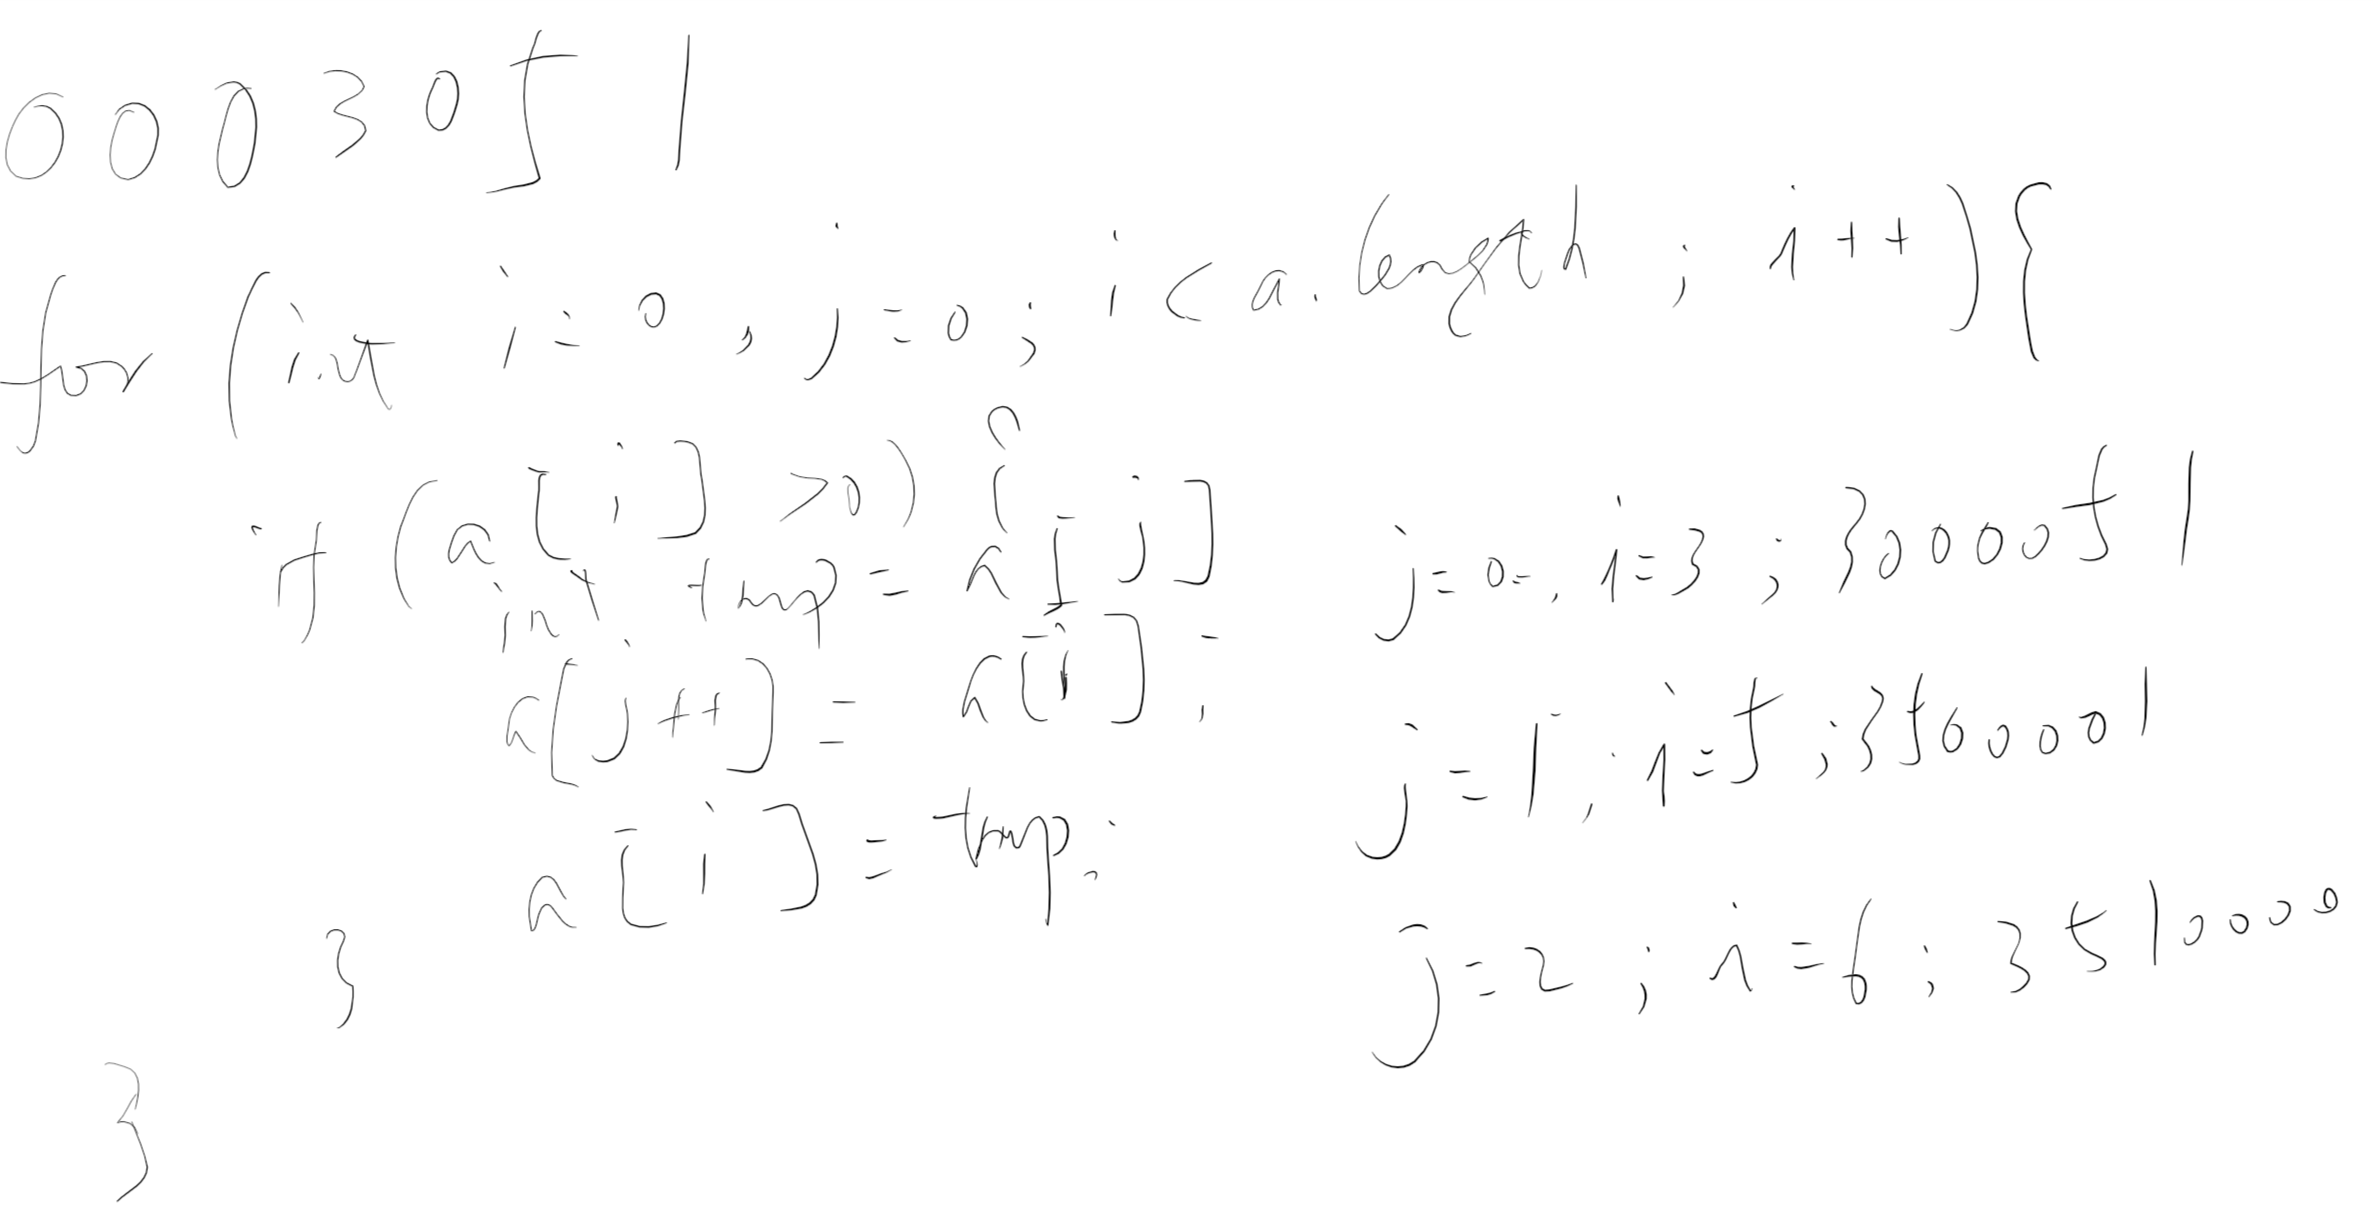 0 0 0 3 0 5 1
for (int i = 0, j = 0; i < a.length; i++) {
if (a[i] > 0) {
int tmp = a[j]
a[j++] = a[i];
a[i] = tmp;
}
}
j=0, i=3; 3000051
j=1, i=5; 3500001
j=2; i=6; 3510000